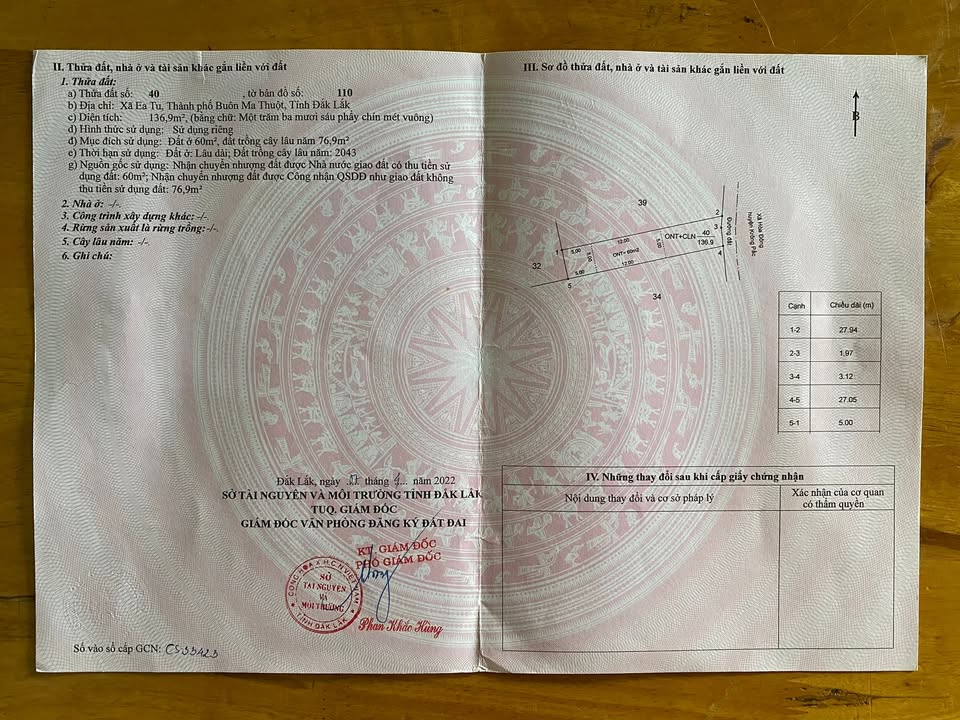 II. Thửa đất, nhà ở và tài sản khác gắn liền với đất
1. Thửa đất:
a) Thửa đất số: 40 , tờ bản đồ số: 110
b) Địa chỉ: Xã Ea Tu, Thành phố Buôn Ma Thuột, Tỉnh Đắk Lắk
c) Diện tích: 136,9m², (bằng chữ: Một trăm ba mươi sáu phẩy chín mét vuông)
d) Hình thức sử dụng: Sử dụng riêng
đ) Mục đích sử dụng: Đất ở 60m², đất trồng cây lâu năm 76,9m²
e) Thời hạn sử dụng: Đất ở: Lâu dài; Đất trồng cây lâu năm: 2043
g) Nguồn gốc sử dụng: Nhận chuyển nhượng đất được Nhà nước giao đất có thu tiền sử
dụng đất: 60m²; Nhận chuyển nhượng đất được Công nhận QSDĐ như giao đất không
thu tiền sử dụng đất: 76,9m²
2. Nhà ở: -/-
3. Công trình xây dựng khác: -/-
4. Rừng sản xuất là rừng trồng: -/-
5. Cây lâu năm: -/-
6. Ghi chú:
Đắk Lắk, ngày tháng năm 2022
SỞ TÀI NGUYÊN VÀ MÔI TRƯỜNG TỈNH ĐẮK LẮK
TUQ. GIÁM ĐỐC
GIÁM ĐỐC VĂN PHÒNG ĐĂNG KÝ ĐẤT ĐAI
KT. GIÁM ĐỐC
PHÓ GIÁM ĐỐC
CỘNG HÒA X.H.C.N VIỆT NAM
SỞ
TÀI NGUYÊN
VÀ
MÔI TRƯỜNG
TỈNH ĐẮK LẮK
Phan Khắc Hùng
Số vào sổ cấp GCN:
III. Sơ đồ thửa đất, nhà ở và tài sản khác gắn liền với đất
B
39
2
3
4
1
5
32
34
ONT+CLN 40
136.9
5.00
12.00
5.00
5.00
ONT= 60m2
5.00
12.00
Đường đất
Xã Hòa Đông
huyện Krông Pắc
Cạnh Chiều dài (m)
1-2 27.94
2-3 1.97
3-4 3.12
4-5 27.05
5-1 5.00
IV. Những thay đổi sau khi cấp giấy chứng nhận
Nội dung thay đổi và cơ sở pháp lý
Xác nhận của cơ quan
có thẩm quyền